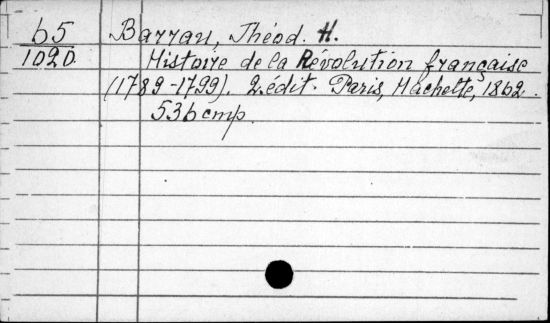 65
1020
Barrau, Théod. H.
Histoire de la Révolution française
(1789-1799). 2. édit. Paris, Hachette, 1862.
536 стр.